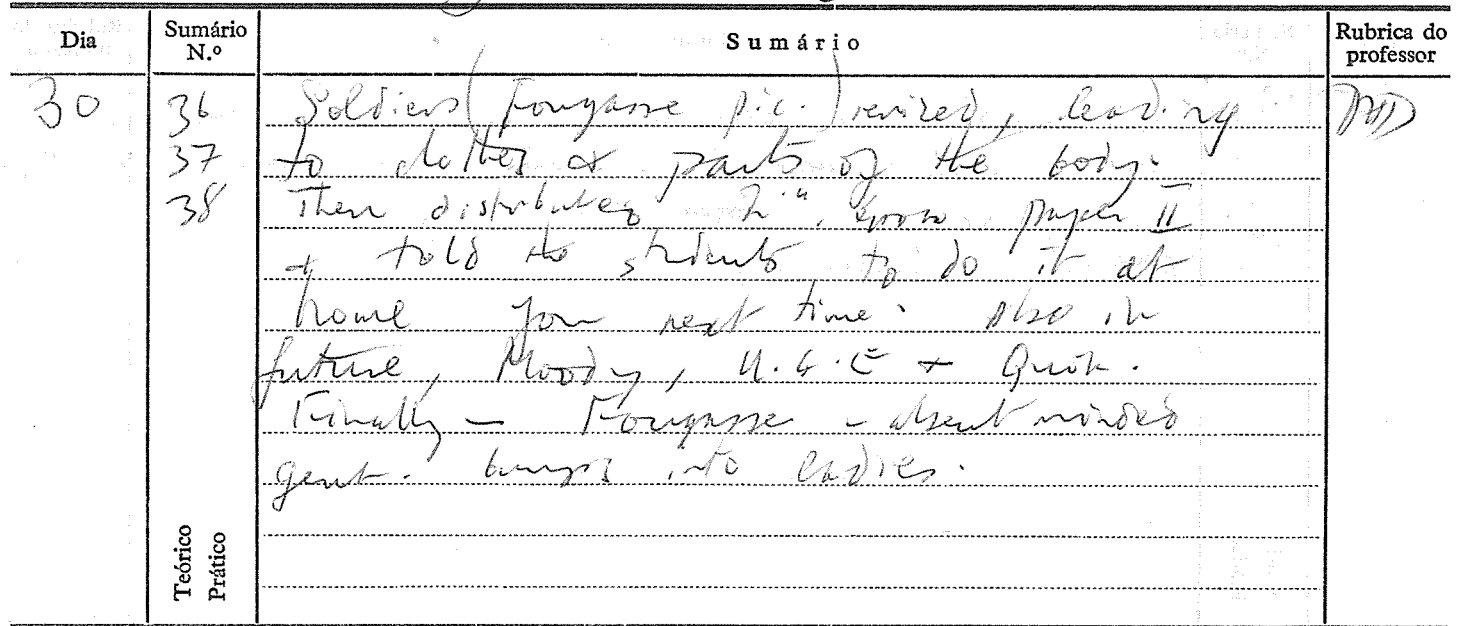 Dia
Sumário N.º
Sumário
Rubrica do professor
30
36
37
38
Soldiers (Fougasse pic.) revised, leading
to clothes & parts of the body.
Then distributed paper II
+ told the students to do it at
home for next time. Also in
future, Moody, U.G.E + Quot.
Finally – Fougasse – absent minded
gent. bumps into ladies.
Teórico
Prático